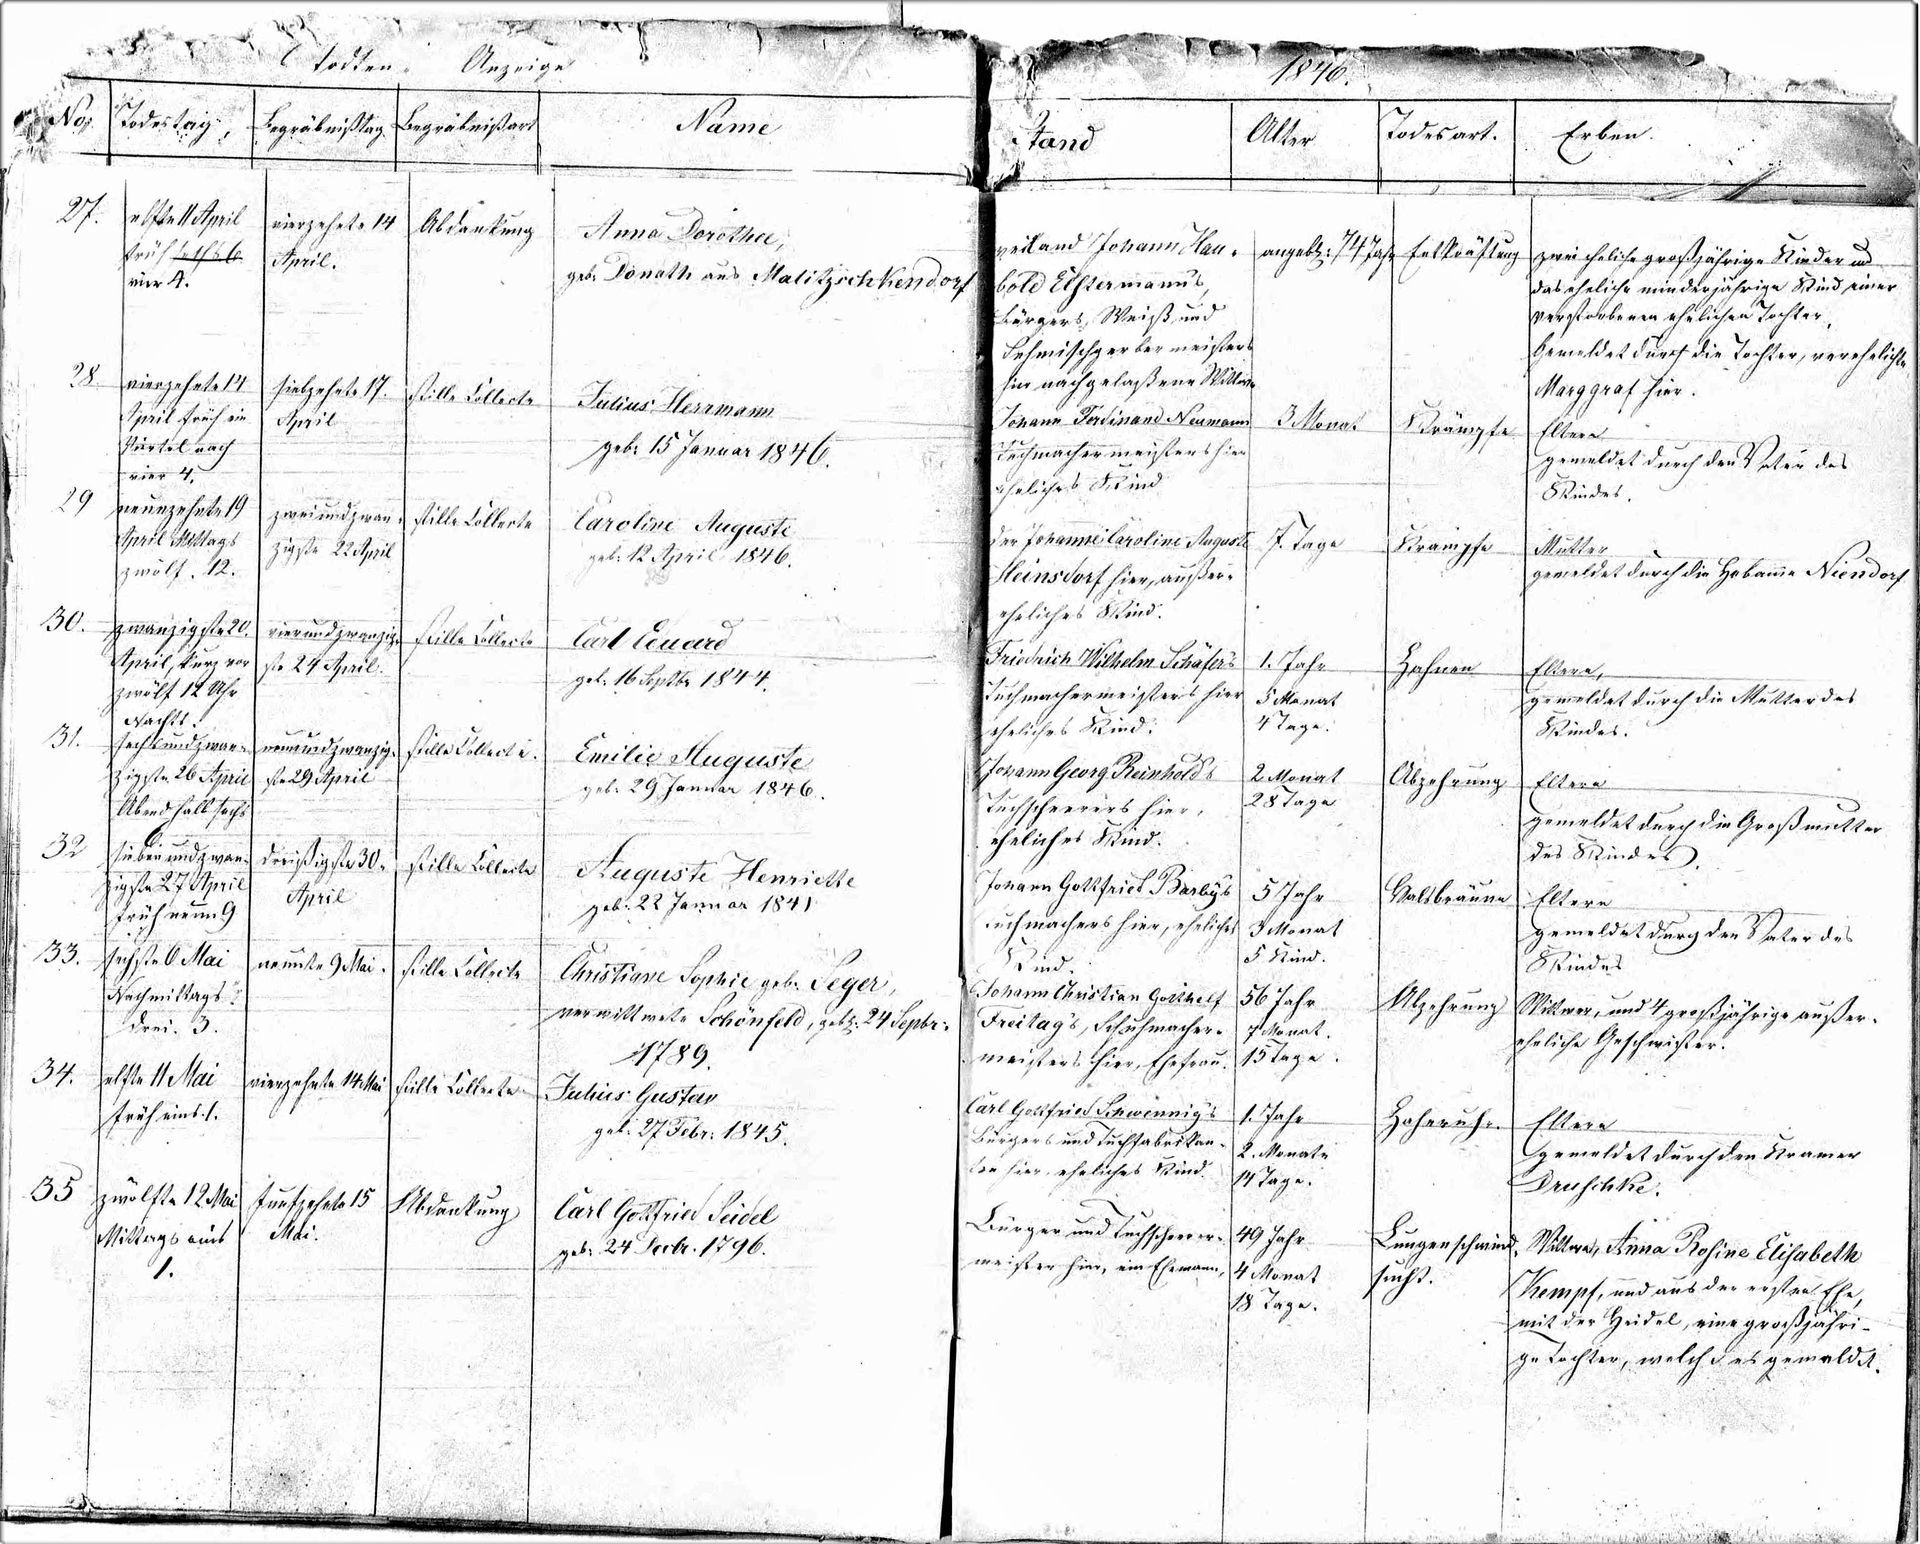 Todten Anzeige
1846.
No. Todestag, Begräbnißtag Begräbnißart Name Stand Alter Todesart. Erben.
27.
elfte 11 April
früh sechs 6
vier 4.
vierzehnte 14
April.
Abdankung
Anna Dorothee,
geb. Donath aus Malitzschkendorf
weiland Johann Hau-
bold Elstermann's,
Bürgers, Weiß und
Sehmischgerbermeisters
hier nachgelaßene Wittwe
angebl: 74 Jahr
Entkräftung
zwei eheliche großjährige Kinder und
das eheliche minderjährige Kind einer
verstorbenen ehelichen Tochter,
Gemeldet durch die Tochter, verehelichte
Marggraf hier.
28
vierzehnte 14
April früh ein
Viertel nach
vier 4.
siebzehnte 17.
April
stille Collecte
Julius Herrmann
geb: 15 Januar 1846.
Johann Ferdinand Neumann
Tuchmachermeisters hier
eheliches Kind
3 Monat
Krämpfe
Eltern
gemeldet durch den Vater des
Kindes.
29
neunzehnte 19
April Mittags
zwölf. 12.
zweiundzwan-
zigste 22 April
stille Collecte
Caroline Auguste
geb: 12 April 1846.
der Johanne Caroline Auguste
Heinsdorf hier, außer-
eheliches Kind.
7. Tage
Krämpfe
Mutter
gemeldet durch die Hebamme Niendorf
30.
zwanzigste 20.
April, kurz vor
zwölf 12 Uhr
Nachts.
vierundzwanzig-
ste 24 April.
stille Collecte
Carl Eduard
geb: 16 Septbr 1844.
Friedrich Wilhelm Schäfer's
Tuchmachermeisters hier
eheliches Kind.
1. Jahr
5 Monat
4 Tage.
Zahnen
Eltern,
gemeldet durch die Mutter des
Kindes.
31.
sechsundzwan-
zigste 26 April
Abend halb sechs
6.
neunundzwanzig-
ste 29 April
stille Collecte.
Emilie Auguste
geb: 29 Januar 1846.
Johann Georg Reinhold's
Tuchscheerers hier,
eheliches Kind.
2 Monat
28 Tage
Abzehrung
Eltern
gemeldet durch die Großmutter
des Kindes.
32
siebenundzwan-
zigste 27 April
früh neun 9
dreißigste 30.
April
stille Collecte
Auguste Henriette
geb: 22 Januar 1841
Johann Gottfried Barby's
Tuchmachers hier, eheliches
Kind.
5 Jahr
3 Monat
5 Kind.
Halsbräune
Eltern
gemeldet durch den Vater des
Kindes
33.
sechste 6 Mai
Nachmittags
drei. 3.
neunte 9 Mai.
stille Collecte
Christiane Sophie geb. Seger,
verwittwete Schönfeld, geb: 24 Septbr.
1789.
Johann Christian Gotthelf
Freitag's, Schuhmacher-
meisters hier, Ehefrau.
56 Jahr
7 Monat.
15 Tage.
Abzehrung
Wittwer, und 4 großjährige außer-
eheliche Geschwister.
34.
elfte 11 Mai
früh eins. 1.
vierzehnte 14 Mai
stille Collecte
Julius Gustav
geb: 27 Febr: 1845.
Carl Gottfried Schwennig's
Bürgers und Tuchfabrikan-
ten hier, eheliches Kind.
1. Jahr
2. Monate
14 Tage.
Zahnruhr.
Eltern
gemeldet durch den Kramer
Druschke.
35
zwölfte 12 Mai
Mittags eins
1.
funfzehnte 15
Mai.
Abdankung
Carl Gottfried Seidel
geb: 24 Decbr. 1796.
Bürger und Tuchscheerer-
meister hier, ein Ehemann,
49 Jahr
4 Monat
18 Tage.
Lungenschwind-
sucht.
Wittwe, Anna Rosine Elisabeth
Kempf, und aus der ersten Ehe,
mit der Heidel, eine großjähri-
ge Tochter, welch es gemeldet.